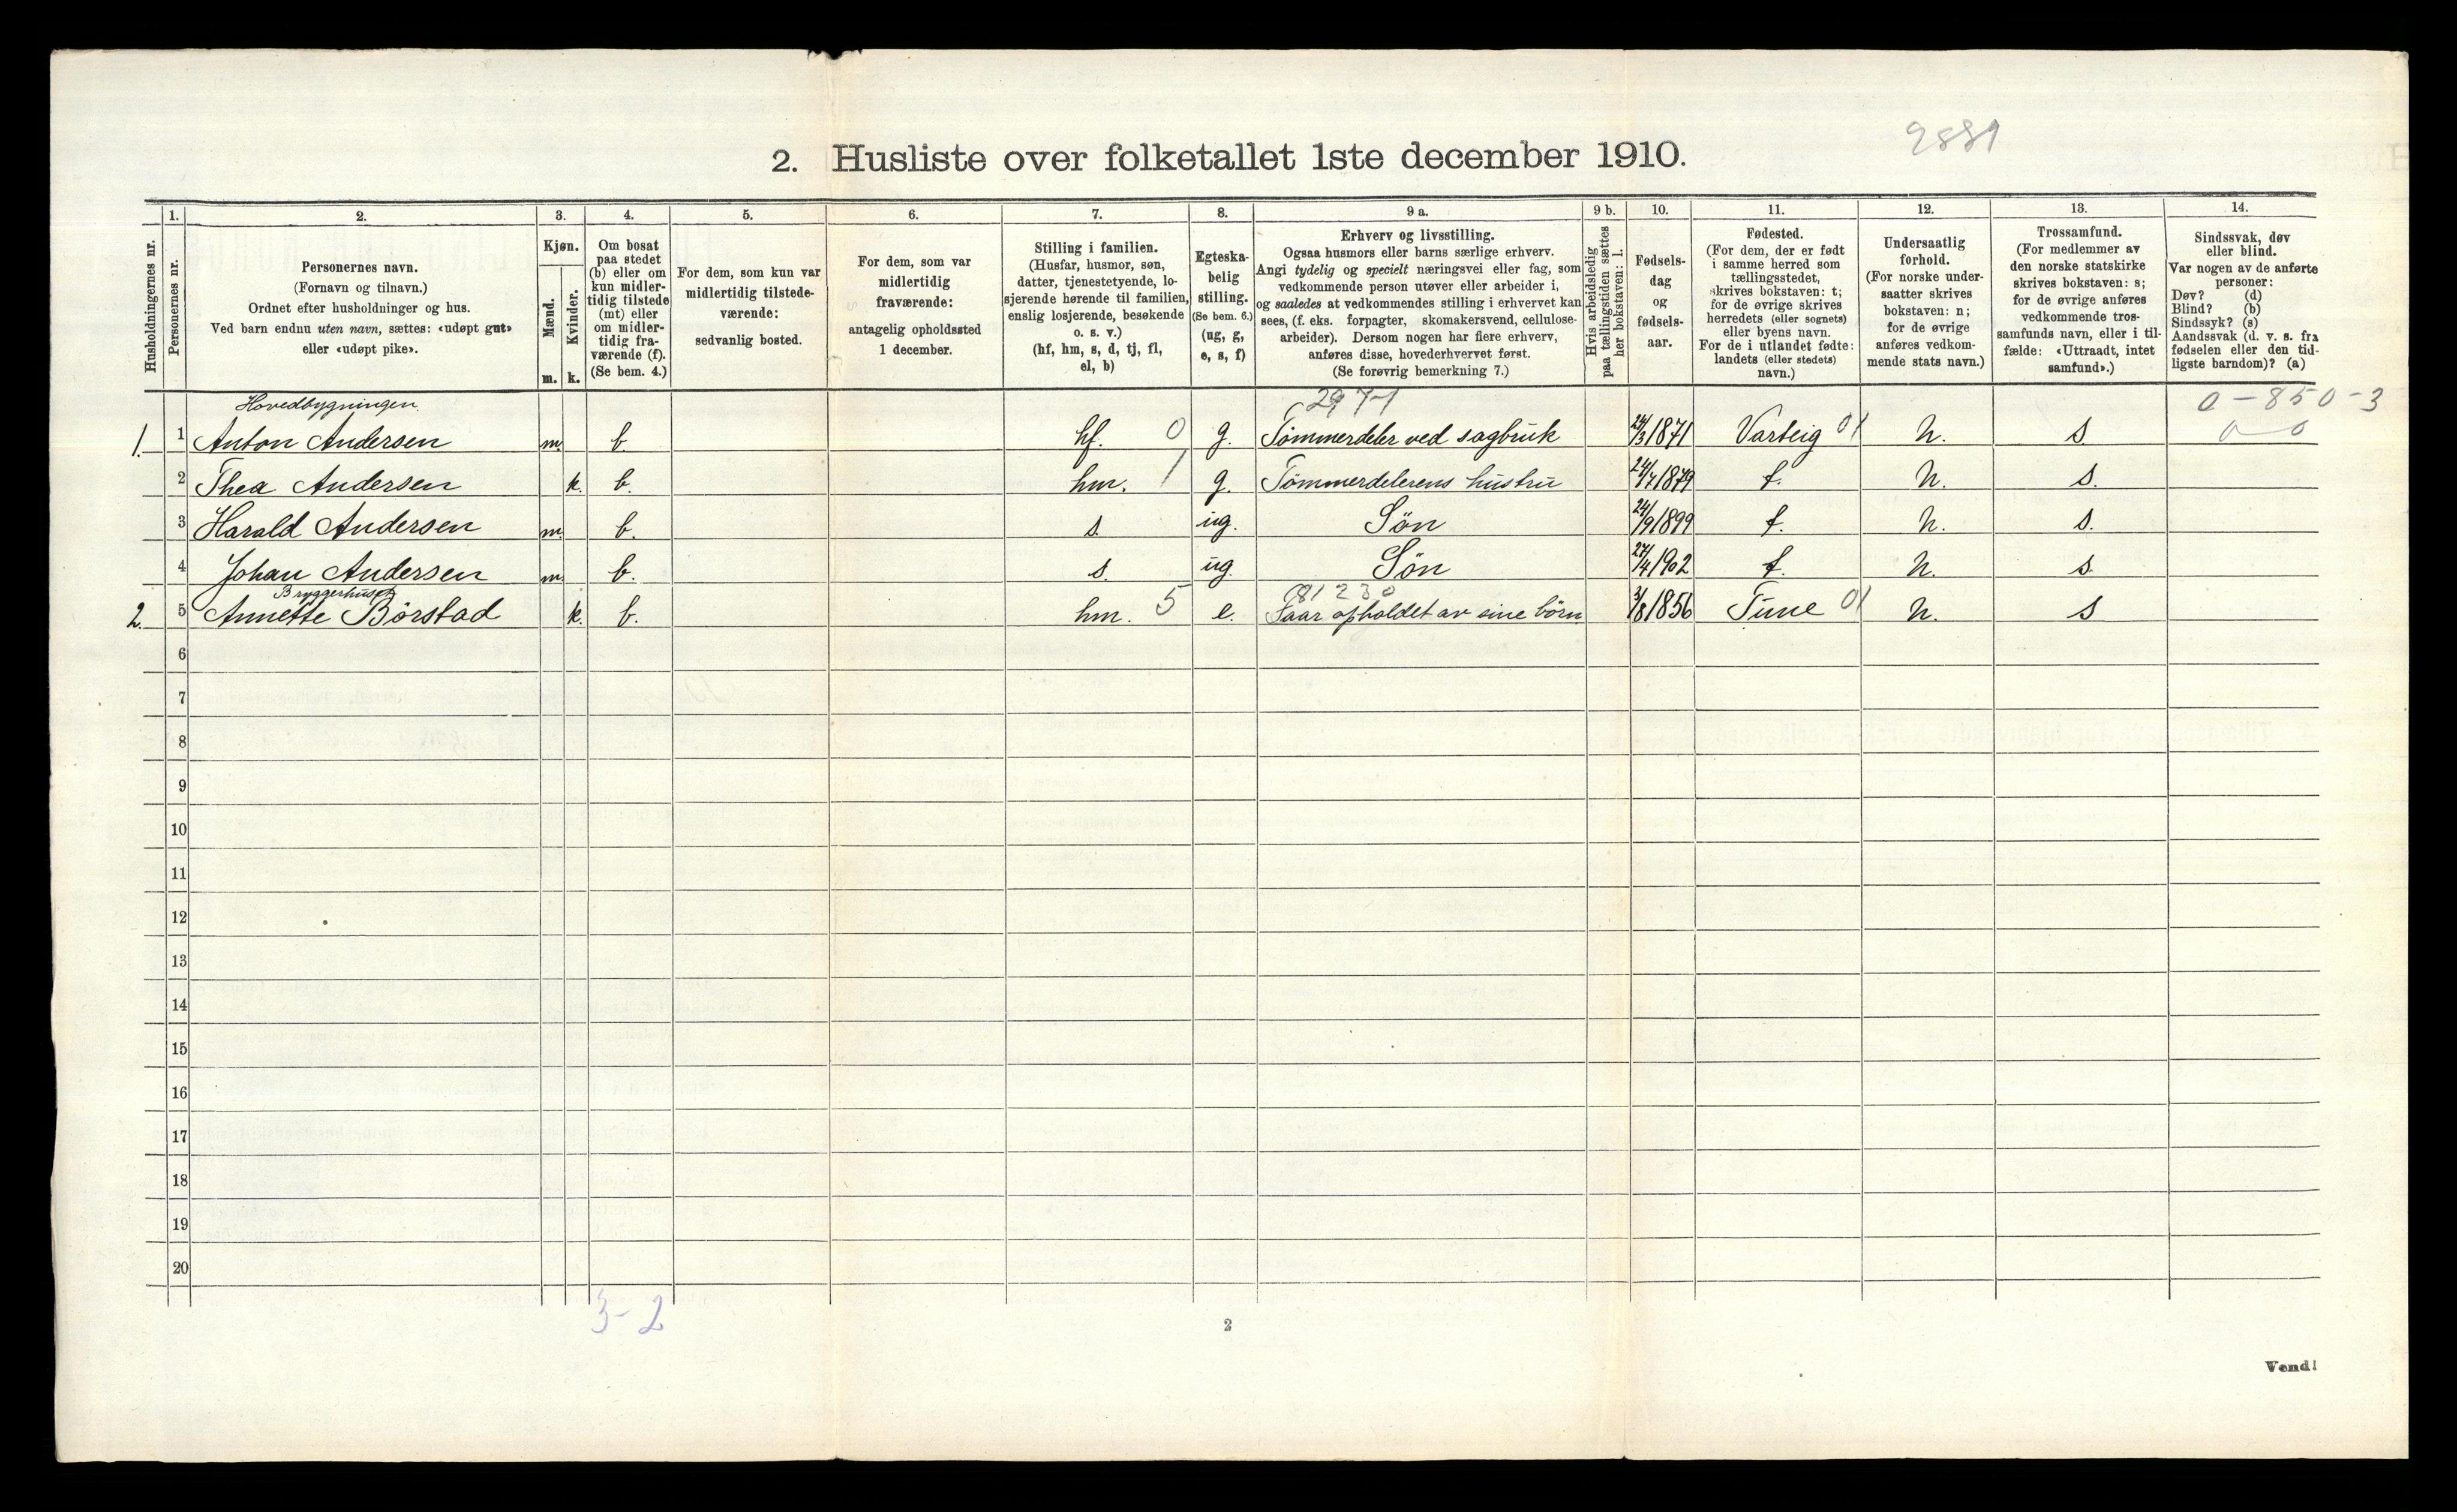 2881
2. Husliste over folketallet 1ste december 1910.
Husholdningernes nr.
1.
Personernes nr.
2.
Personernes navn.
(Fornavn og tilnavn.)
Ordnet efter husholdninger og hus.
Ved barn endnu uten navn, sættes: «udøpt gut»
eller «udøpt pike».
3.
Kjøn.
Mænd.
Kvinder.
m. k.
4.
Om bosat
paa stedet
(b) eller om
kun midler-
tidig tilstede
(mt) eller
om midler-
tidig fra-
værende (f).
(Se bem. 4.)
5.
For dem, som kun var
midlertidig tilstede-
værende:
sedvanlig bosted.
6.
For dem, som var
midlertidig
fraværende:
antagelig opholdssted
1 december.
7.
Stilling i familien.
(Husfar, husmor, søn,
datter, tjenestetyende, lo-
sjerende hørende til familien,
enslig losjerende, besøkende
o. s. v.)
(hf, hm, s, d, tj, fl,
el, b)
8.
Egteska-
belig
stilling.
(Se bem. 6.)
(ug, g,
e, s, f)
9 a.
Erhverv og livsstilling.
Ogsaa husmors eller barns særlige erhverv.
Angi tydelig og specielt næringsvei eller fag, som
vedkommende person utøver eller arbeider i,
og saaledes at vedkommendes stilling i erhvervet kan
sees, (f. eks. forpagter, skomakersvend, cellulose-
arbeider). Dersom nogen har flere erhverv,
anføres disse, hovederhvervet først.
(Se forøvrig bemerkning 7.)
9 b.
Hvis arbeidsledig
paa tællingstiden sættes
her bokstaven: l.
10.
Fødsels-
dag
og
fødsels-
aar.
11.
Fødested.
(For dem, der er født
i samme herred som
tællingsstedet,
skrives bokstaven: t;
for de øvrige skrives
herredets (eller sognets)
eller byens navn.
For de i utlandet fødte:
landets (eller stedets)
navn.)
12.
Undersaatlig
forhold.
(For norske under-
saatter skrives
bokstaven: n;
for de øvrige
anføres vedkom-
mende stats navn.)
13.
Trossamfund.
(For medlemmer av
den norske statskirke
skrives bokstaven: s;
for de øvrige anføres
vedkommende tros-
samfunds navn, eller i til-
fælde: «Uttraadt, intet
samfund».)
14.
Sindssvak, døv
eller blind.
Var nogen av de anførte
personer:
Døv? (d)
Blind? (b)
Sindssyk? (s)
Aandssvak (d. v. s. fra
fødselen eller den tid-
ligste barndom)? (a)
Hovedbygningen 297-1 0-850-3
1. 1 Anton Andersen m. b. hf. 0 g. Tømmerdeler ved sagbruk 24/3 1871 Varteig 01 n. s 0-0
2 Thea Andersen k. b. hm. 1 g. Tømmerdelerens hustru 24/7 1879 t. n. s.
3 Harald Andersen m. b. s. ug. Søn 24/9 1899 t. n. s.
4 Johan Andersen m. b. s. ug. Søn 27/4 1902 t. n. s.
Bryggerhuset 81230
2. 5 Annette Børstad k. b. hm. 5 e. Faar opholdet av sine børn 3/8 1856 Tune 01 n. s
6
7
8
9
10
11
12
13
14
15
16
17
18
19
20
3-2
2
Vend!